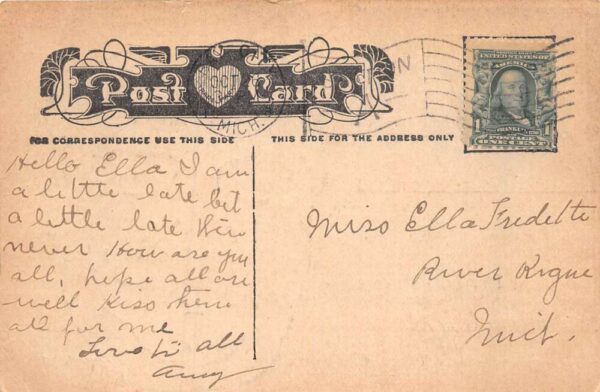 Post Card
OCT
MICH.
UNITED STATES OF AMERICA
FRANKLIN
POSTAGE
ONE CENT
FOR CORRESPONDENCE USE THIS SIDE
THIS SIDE FOR THE ADDRESS ONLY
Hello Ella I am
a little late but
a little late
never How are you
all, hope all are
well Kiss them
all for me
Love to all
Amy
Miss Ella Fredette
River Rigue
Mich.